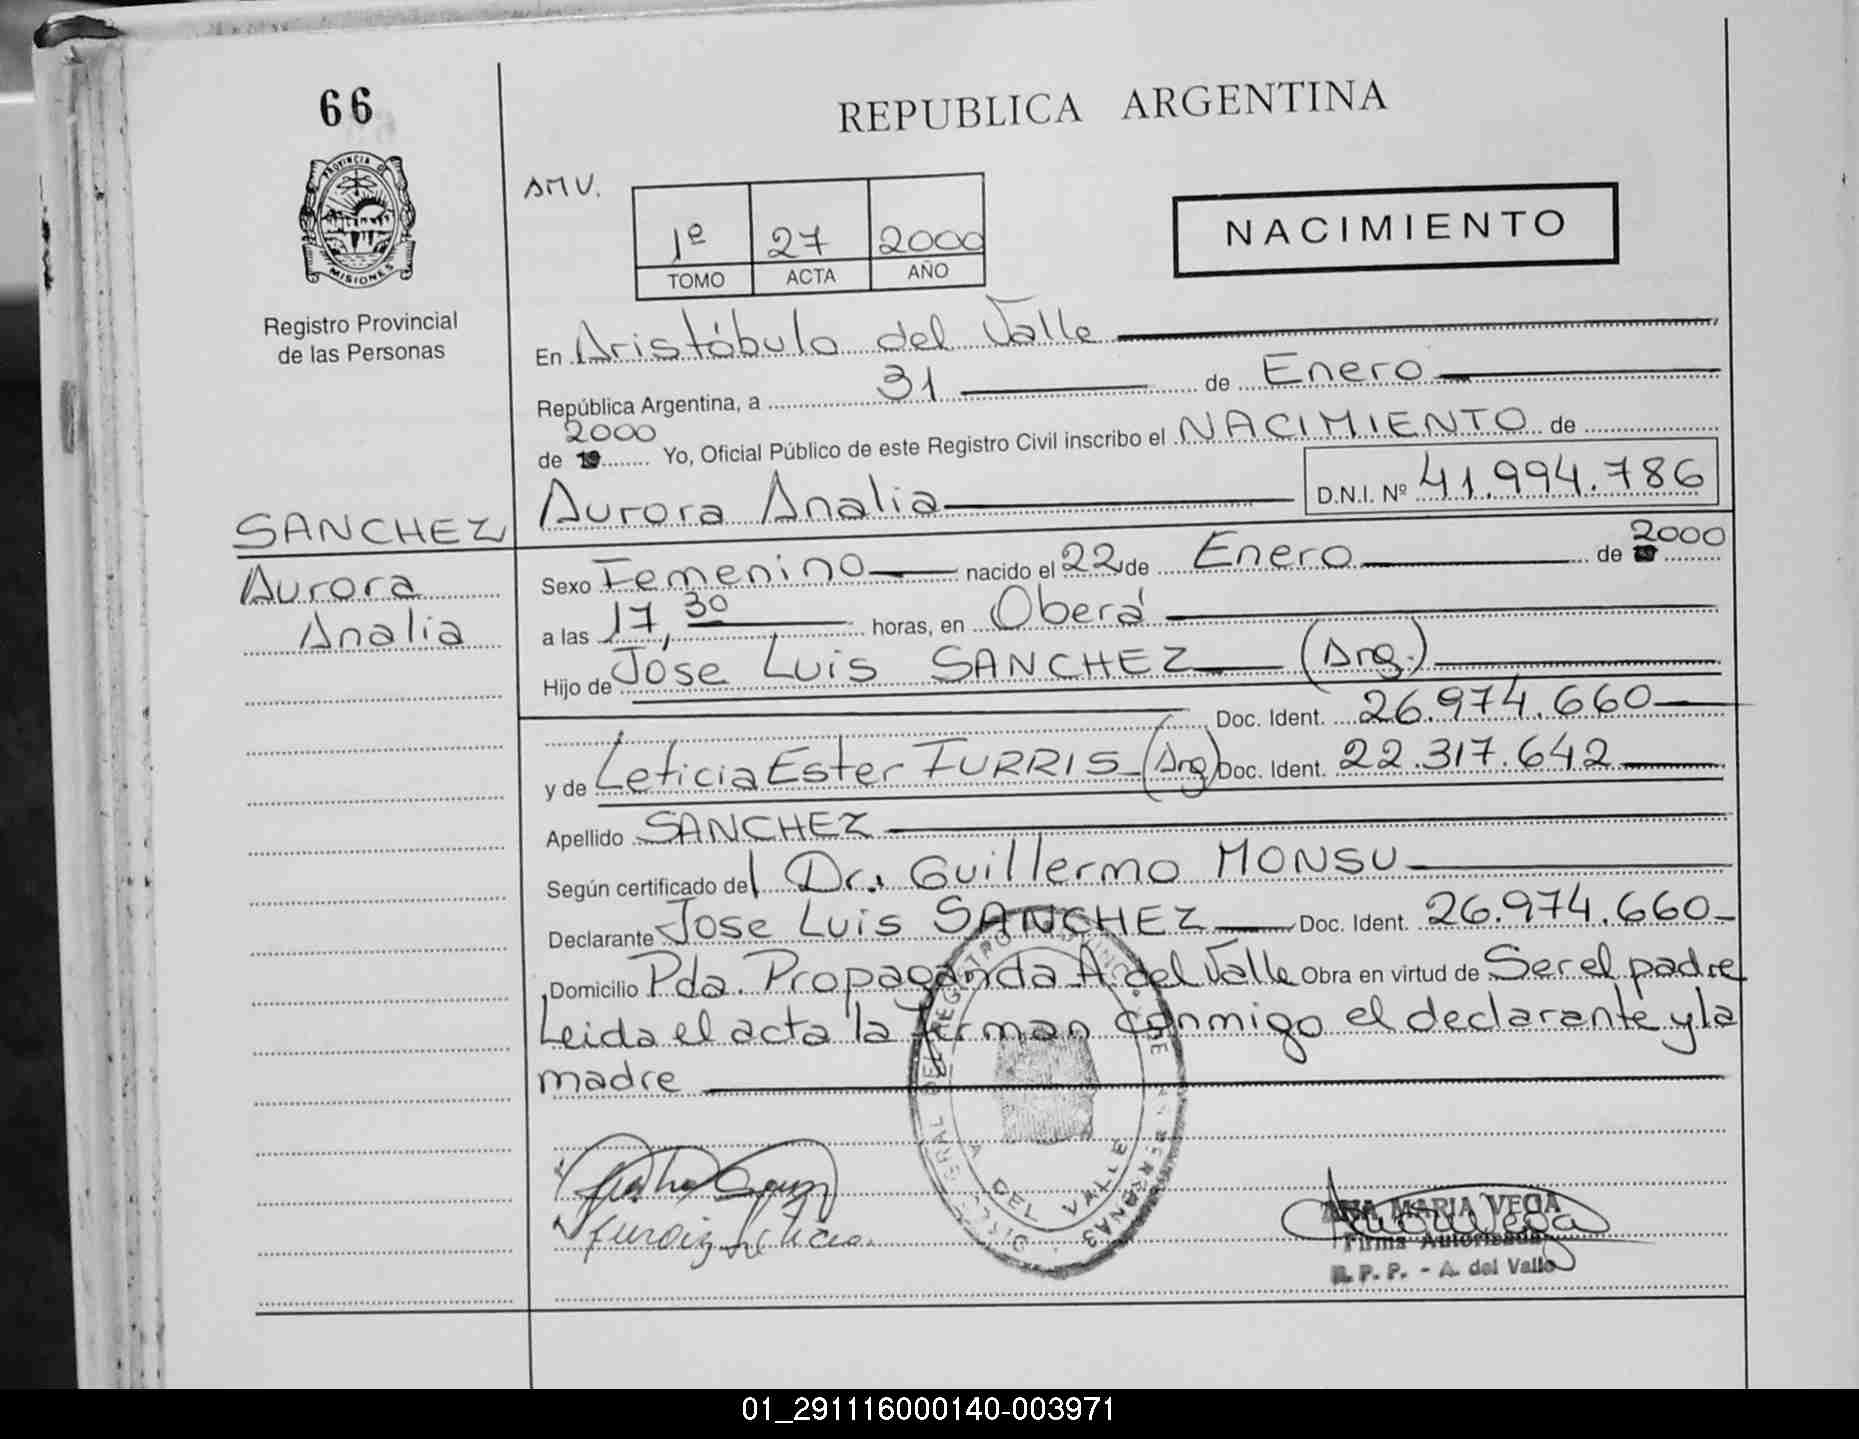 66
REPUBLICA ARGENTINA
PROVINCIA DE
MISIONES
Registro Provincial
de las Personas
AMV.
1º 27 2000
TOMO ACTA AÑO
NACIMIENTO
En Aristóbulo del Valle
República Argentina, a 31 de Enero
2000
de 19 Yo, Oficial Público de este Registro Civil inscribo el NACIMIENTO de
Aurora Analia D.N.I. Nº 41.994.786
SANCHEZ
Aurora
Analia
Sexo Femenino nacido el 22 de Enero de 2000
a las 17,30 horas, en Oberá
Hijo de Jose Luis SANCHEZ (Arg.)
Doc. Ident. 26.974.660
y de Leticia Ester FURRIS (Arg) Doc. Ident. 22.317.642
Apellido SANCHEZ
Según certificado del Dr. Guillermo MONSU
Declarante Jose Luis SANCHEZ Doc. Ident. 26.974.660
Domicilio Pda. Propaganda A. del Valle Obra en virtud de Ser el padre
Leida el acta la firman conmigo el declarante y la
madre
A DEL VALLE
ANA MARIA VEGA
Firma Autorizada
R. P. P. - A. del Valle
01_291116000140-003971